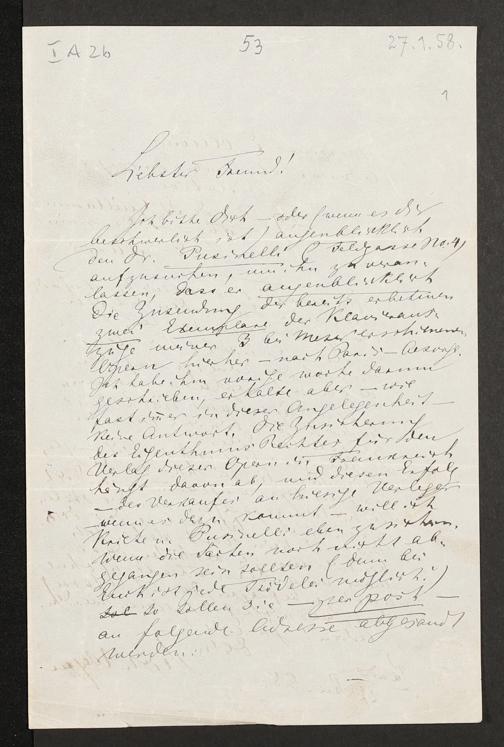 I A 2b 53 27.1.58.
1
Liebster Freund!
Ich bitte Dich – oder (wenn es dir
beschwerlich ist) augenblicklich
den Dr. Pusinelli (Feldgasse No. 4)
aufzusuchen, um ihn zu veran-
lassen, dass er augenblicklich
die Zusendung der bereits erbetenen
zwei Exemplare der Klavieraus-
züge meiner 3 bei Meser erschienenen
Opern hierher – nach Paris – besorge.
Ich habe ihm vorige Woche darum
geschrieben, erhalte aber – wie
fast immer in dieser Angelegenheit –
keine Antwort. Die Zusicherung
des Eigenthums Rechtes für den
Verlag dieser Opern in Frankreich
hängt davon ab, und diesen Erfolg
– des Verkaufes an hiesige Verleger
wenn es dazu kommt – will ich
Pusinelli eben zusichern.
Wenn die Sachen noch nicht ab-
gegangen sein sollten (denn bei
Euch ist jede Trödelei möglich!)
so sollen Sie – per post –
an folgende Adresse abgesandt
werden: